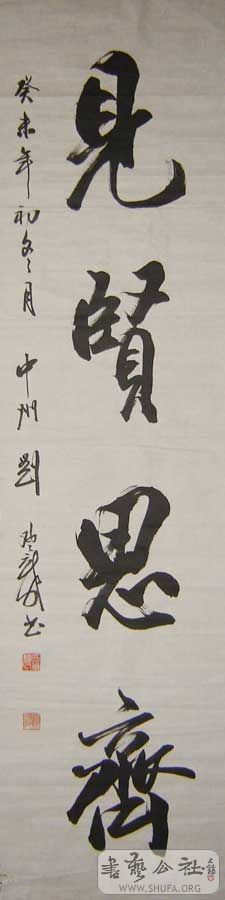 見賢思齊
癸未年初冬月 中州 劉
書
書藝公社
WWW.SHUFA.ORG